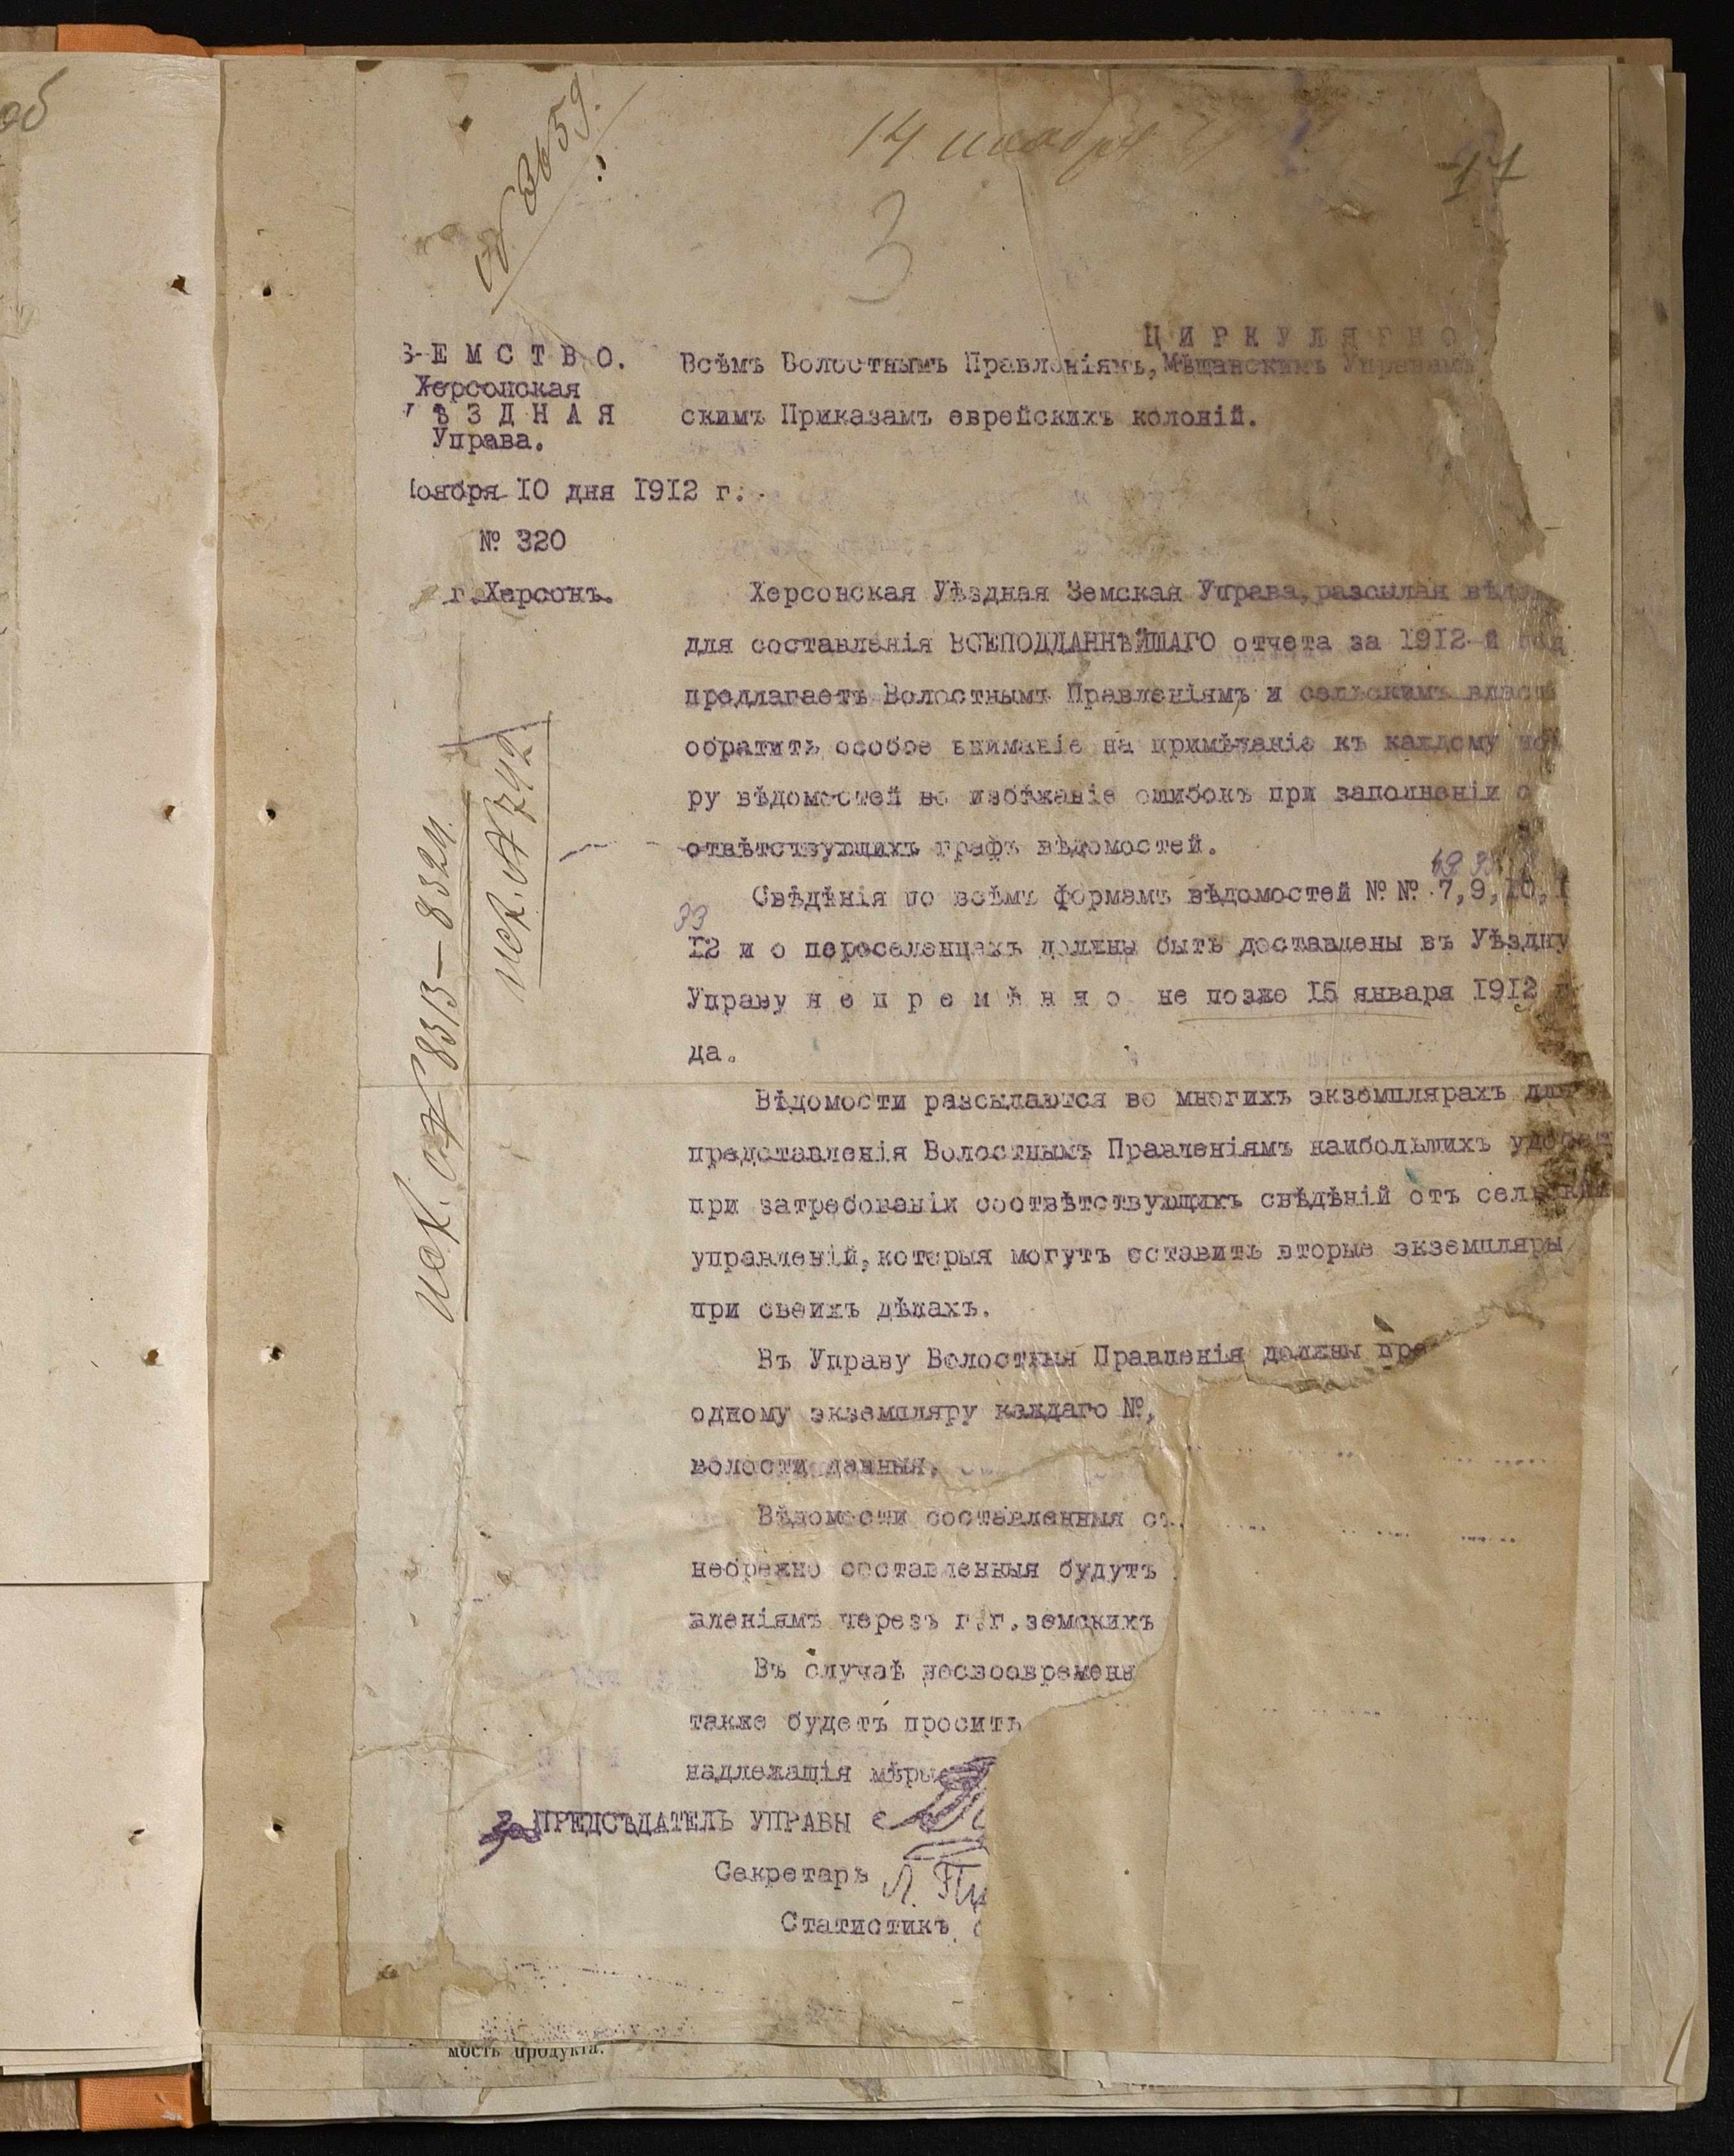 об
№ 3659.
14 ноября
17
3
ЦИРКУЛЯРНО
З-ЕМСТВО.
Херсонская
УѢЗДНАЯ
Управа.
Ноября 10 дня 1912 г.
№ 320
г.Херсонъ.
Всѣмъ Волостнымъ Правленіямъ, Мѣщанскимъ Управамъ
скимъ Приказамъ еврейскихъ колоній.
Херсонская Уѣздная Земская Управа, разсылая вѣдо
для составленія ВСЕПОДДАННѢЙШАГО отчета за 1912-й год
предлагаетъ Волостнымъ Правленіямъ и сельскимъ власт
обратить особое вниманіе на примѣчаніе къ каждому но
ру вѣдомостей во избѣжаніе ошибокъ при заполненіи с
отвѣтствующихъ графъ вѣдомостей.
Свѣдѣнія по всѣмъ формамъ вѣдомостей №№ 7,9,10,1
33
12 и о переселенцахъ должны быть доставлены въ Уѣздну
Управу н е п р е м ѣ н н о не позже 15 января 1912
да.
Вѣдомости разсылаются во многихъ экземплярахъ для
представленія Волостнымъ Правленіямъ наибольшихъ удобст
при затребованіи соотвѣтствующихъ свѣдѣній отъ сельски
управленій, которыя могутъ оставить вторые экземпляры
при своихъ дѣлахъ.
Въ Управу Волостныя Правленія должны пре
одному экземпляру каждаго №,
волости данныя.
Вѣдомости составленныя с
небрежно составленныя будутъ
вленіямъ черезъ г.г.земскихъ
Въ случаѣ несвоевременн
также будетъ просить
надлежащія мѣры
За ПРЕДСѢДАТЕЛЬ УПРАВЫ
Секретарь Л.
Статистикъ
исх. № 8313-8324.
исх. № 742
мость продукта.